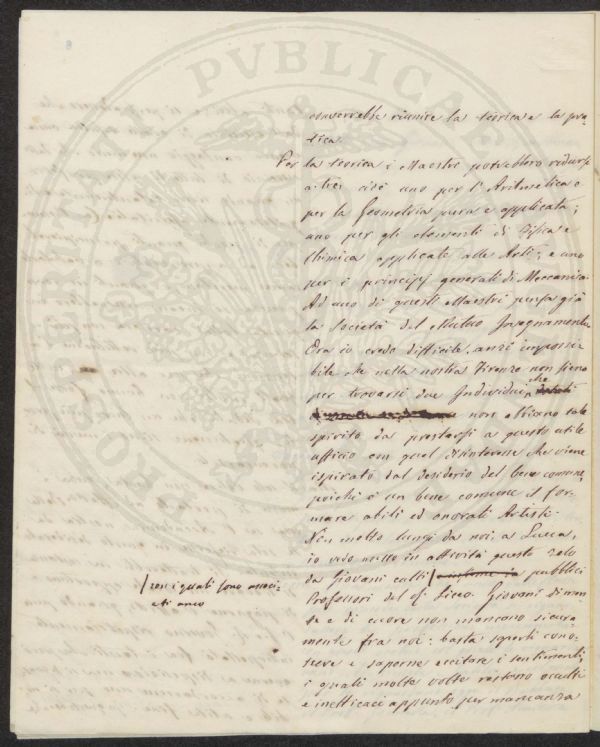 PVBLICAE
converrebbe riunire la teorica e la pra-
tica.
Per la teorica i Maestri potrebbero ridursi
a tre: cioè uno per l'Aritmetica e
per la Geometria pura e applicata;
uno per gli elementi di Fisica e
Chimica applicate alle Arti; e uno
per i principj generali di Meccanica.
Ad uno di questi Maestri pensa già
la Società del Mutuo Insegnamento.
Ora io credo difficile, anzi impossi-
bile che nella nostra Firenze non sieno
per trovarsi due Individui che
non abbiano tale
spirito da prestarsi a questo utile
ufficio con quel disinteresse che viene
ispirato dal desiderio del bene comune,
poichè è un bene comune il for-
mare abili ed onorati Artisti.
Non molto lungi da noi, a Lucca,
io vedo messo in attività questo zelo
da Giovani culti / pubblici
/ con i quali sono associ-
ati anco
Professori del Liceo. Giovani di men-
te e di cuore non mancano sicura-
mente fra noi: basta saperli cono-
scere e saperne eccitare i sentimenti,
i quali molte volte restano occulti
e inefficaci appunto per mancanza